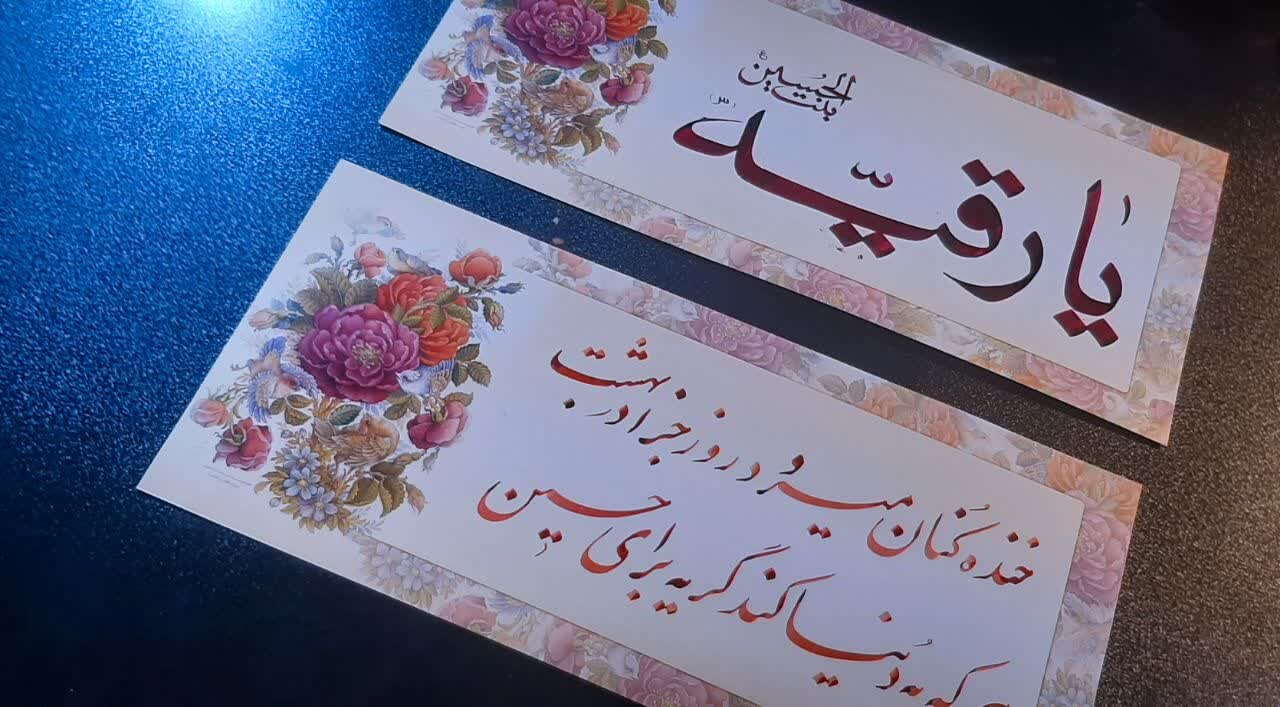 یا رقیّه
بنت الحُسین ع
(س)
خنده کُنان میرود روز جزا در بهشت
که به دُنیا کند گریه برای حسین